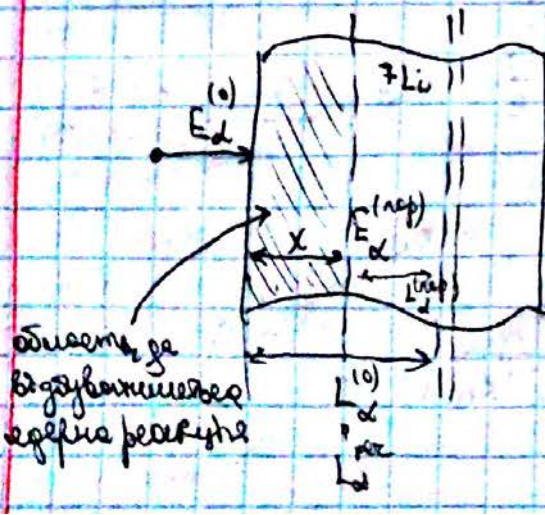 E_α^(0)
⁷Li
x
E_α^(пор)
L_α^(пор)
область, де
відбуватиметься
ядерна реакція
L_α^(0)
L_α